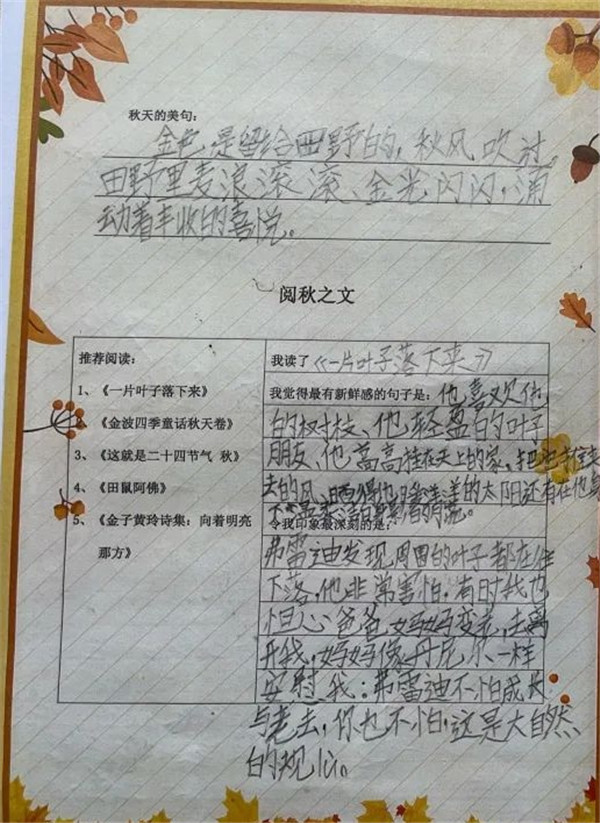 秋天的美句：
金色是留给田野的，秋风吹过，
田野里麦浪滚滚、金光闪闪，涌
动着丰收的喜悦。
阅秋之文
推荐阅读：
1、《一片叶子落下来》
2、《金波四季童话秋天卷》
3、《这就是二十四节气 秋》
4、《田鼠阿佛》
5、《金子黄玲诗集：向着明亮
那方》
我读了《一片叶子落下来》
我觉得最有新鲜感的句子是：他喜欢他
的树枝、他轻盈的叶子
朋友、他高高挂在天上的家，把他推来
去的风、晒得他暖洋洋的太阳还有在他身
令我印象最深刻的是：
弗雷迪发现周围的叶子都在往
下落，他非常害怕，有时我也
担心爸爸妈妈变老，去离
开我，妈妈像丹尼尔一样
安慰我：弗雷迪不怕成长
与老去，你也不怕，这是大自然
的规